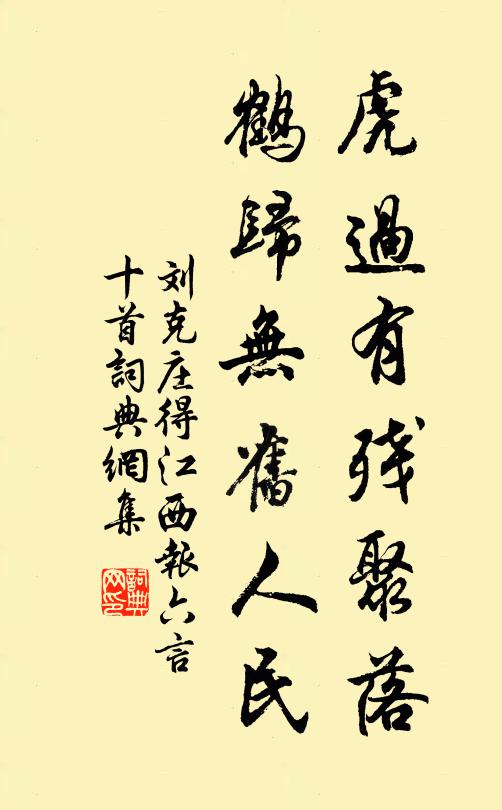 虎過有残聚落
鶴歸無舊人民
刘克庄得江西報六言
十首詞典網集
詞典網印